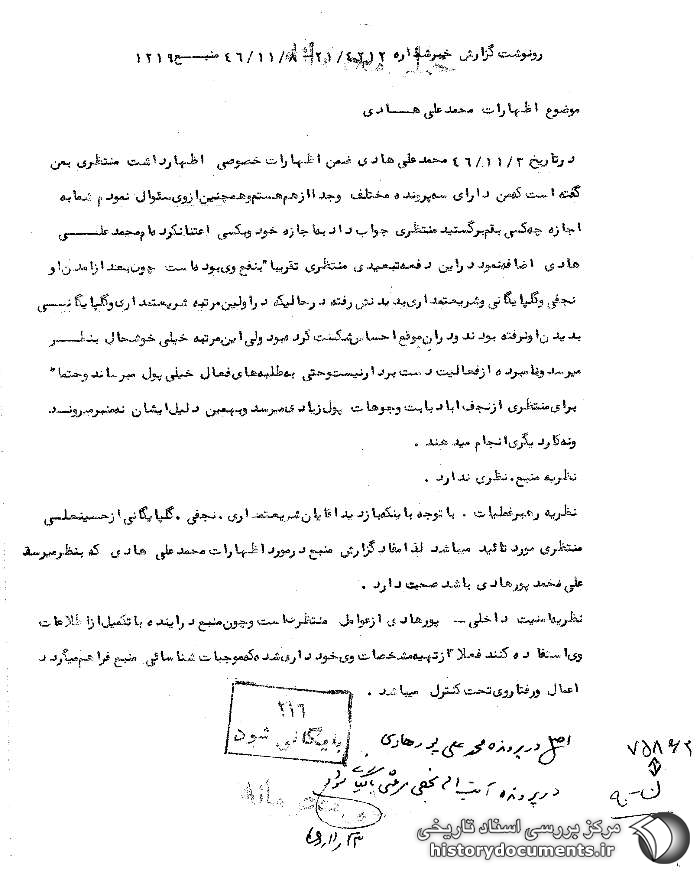 رونوشت گزارش خبر شماره ۲۱/۴۲۱۲ ۴۶/۱۱/۸ منبع ۱۲۱۹
موضوع اظهارات محمدعلی هادی
درتاریخ ۴۶/۱۱/۲ محمدعلی هادی ضمن اظهارات خصوصی اظهارداشت منتظری بمن
گفته است که من دارای سه پرونده مختلف وجدا ازهم هستم وهمچنین ازوی سئوال نمودم شما به
اجازه چه کسی بقم برگشتید منتظری جواب داد با اجازه خود وبکسی اعتنا نکرده ام محمدعلی
هادی اضافه نمود دراین دفعه تبعیدی منتظری تقریبا" بنفع وی بوده است چون بعد ازآمدن او
نجفی وگلپایگانی وشریعتمداری بدیدنش رفته درحالیکه دراولین مرتبه شریعتمداری وگلپایگانی
بدیدن اونرفته بودند ودرآن موقع احساس شکست کرده بود ولی این مرتبه خیلی خوشحال بنظر
میرسد ونامبرده ازفعالیت دست بردار نیست وحتی به طلبه های فعال خیلی پول میرساند وحتما"
برای منتظری ازنجف آباد بابت وجوهات پول زیادی میرسد وبهمین دلیل ایشان نه منبر میروند
ونه کار دیگری انجام میدهند .
نظریه منبع . نظری ندارد .
نظریه رهبرعملیات . با توجه باینکه بازدید آقایان شریعتمداری . نجفی . گلپایگانی ازحسینعلی
منتظری مورد تائید میباشد لذا مفاد گزارش منبع درمورد اظهارات محمدعلی هادی که بنظرمیرسد
علی محمد پورهادی باشد صحت دارد .
نظریه امنیت داخلی – پورهادی ازعوامل منتظری است وچون منبع درآینده با تکمیل ازاطلاعات
وی استفاده کنند فعلا" ازتهیه مشخصات وی خودداری شده که موجبات شناسائی منبع فراهم میگردد
اعمال ورفتاروی تحت کنترل میباشد .
۳۱۶
بایگانی شود
اصل در پرونده محمد علی پورهادی
در پرونده آیت اله نجفی مرعشی بایگانی شود
۷۵۸۶۲
محرمانه
مرکز بررسی اسناد تاریخی
historydocuments.ir